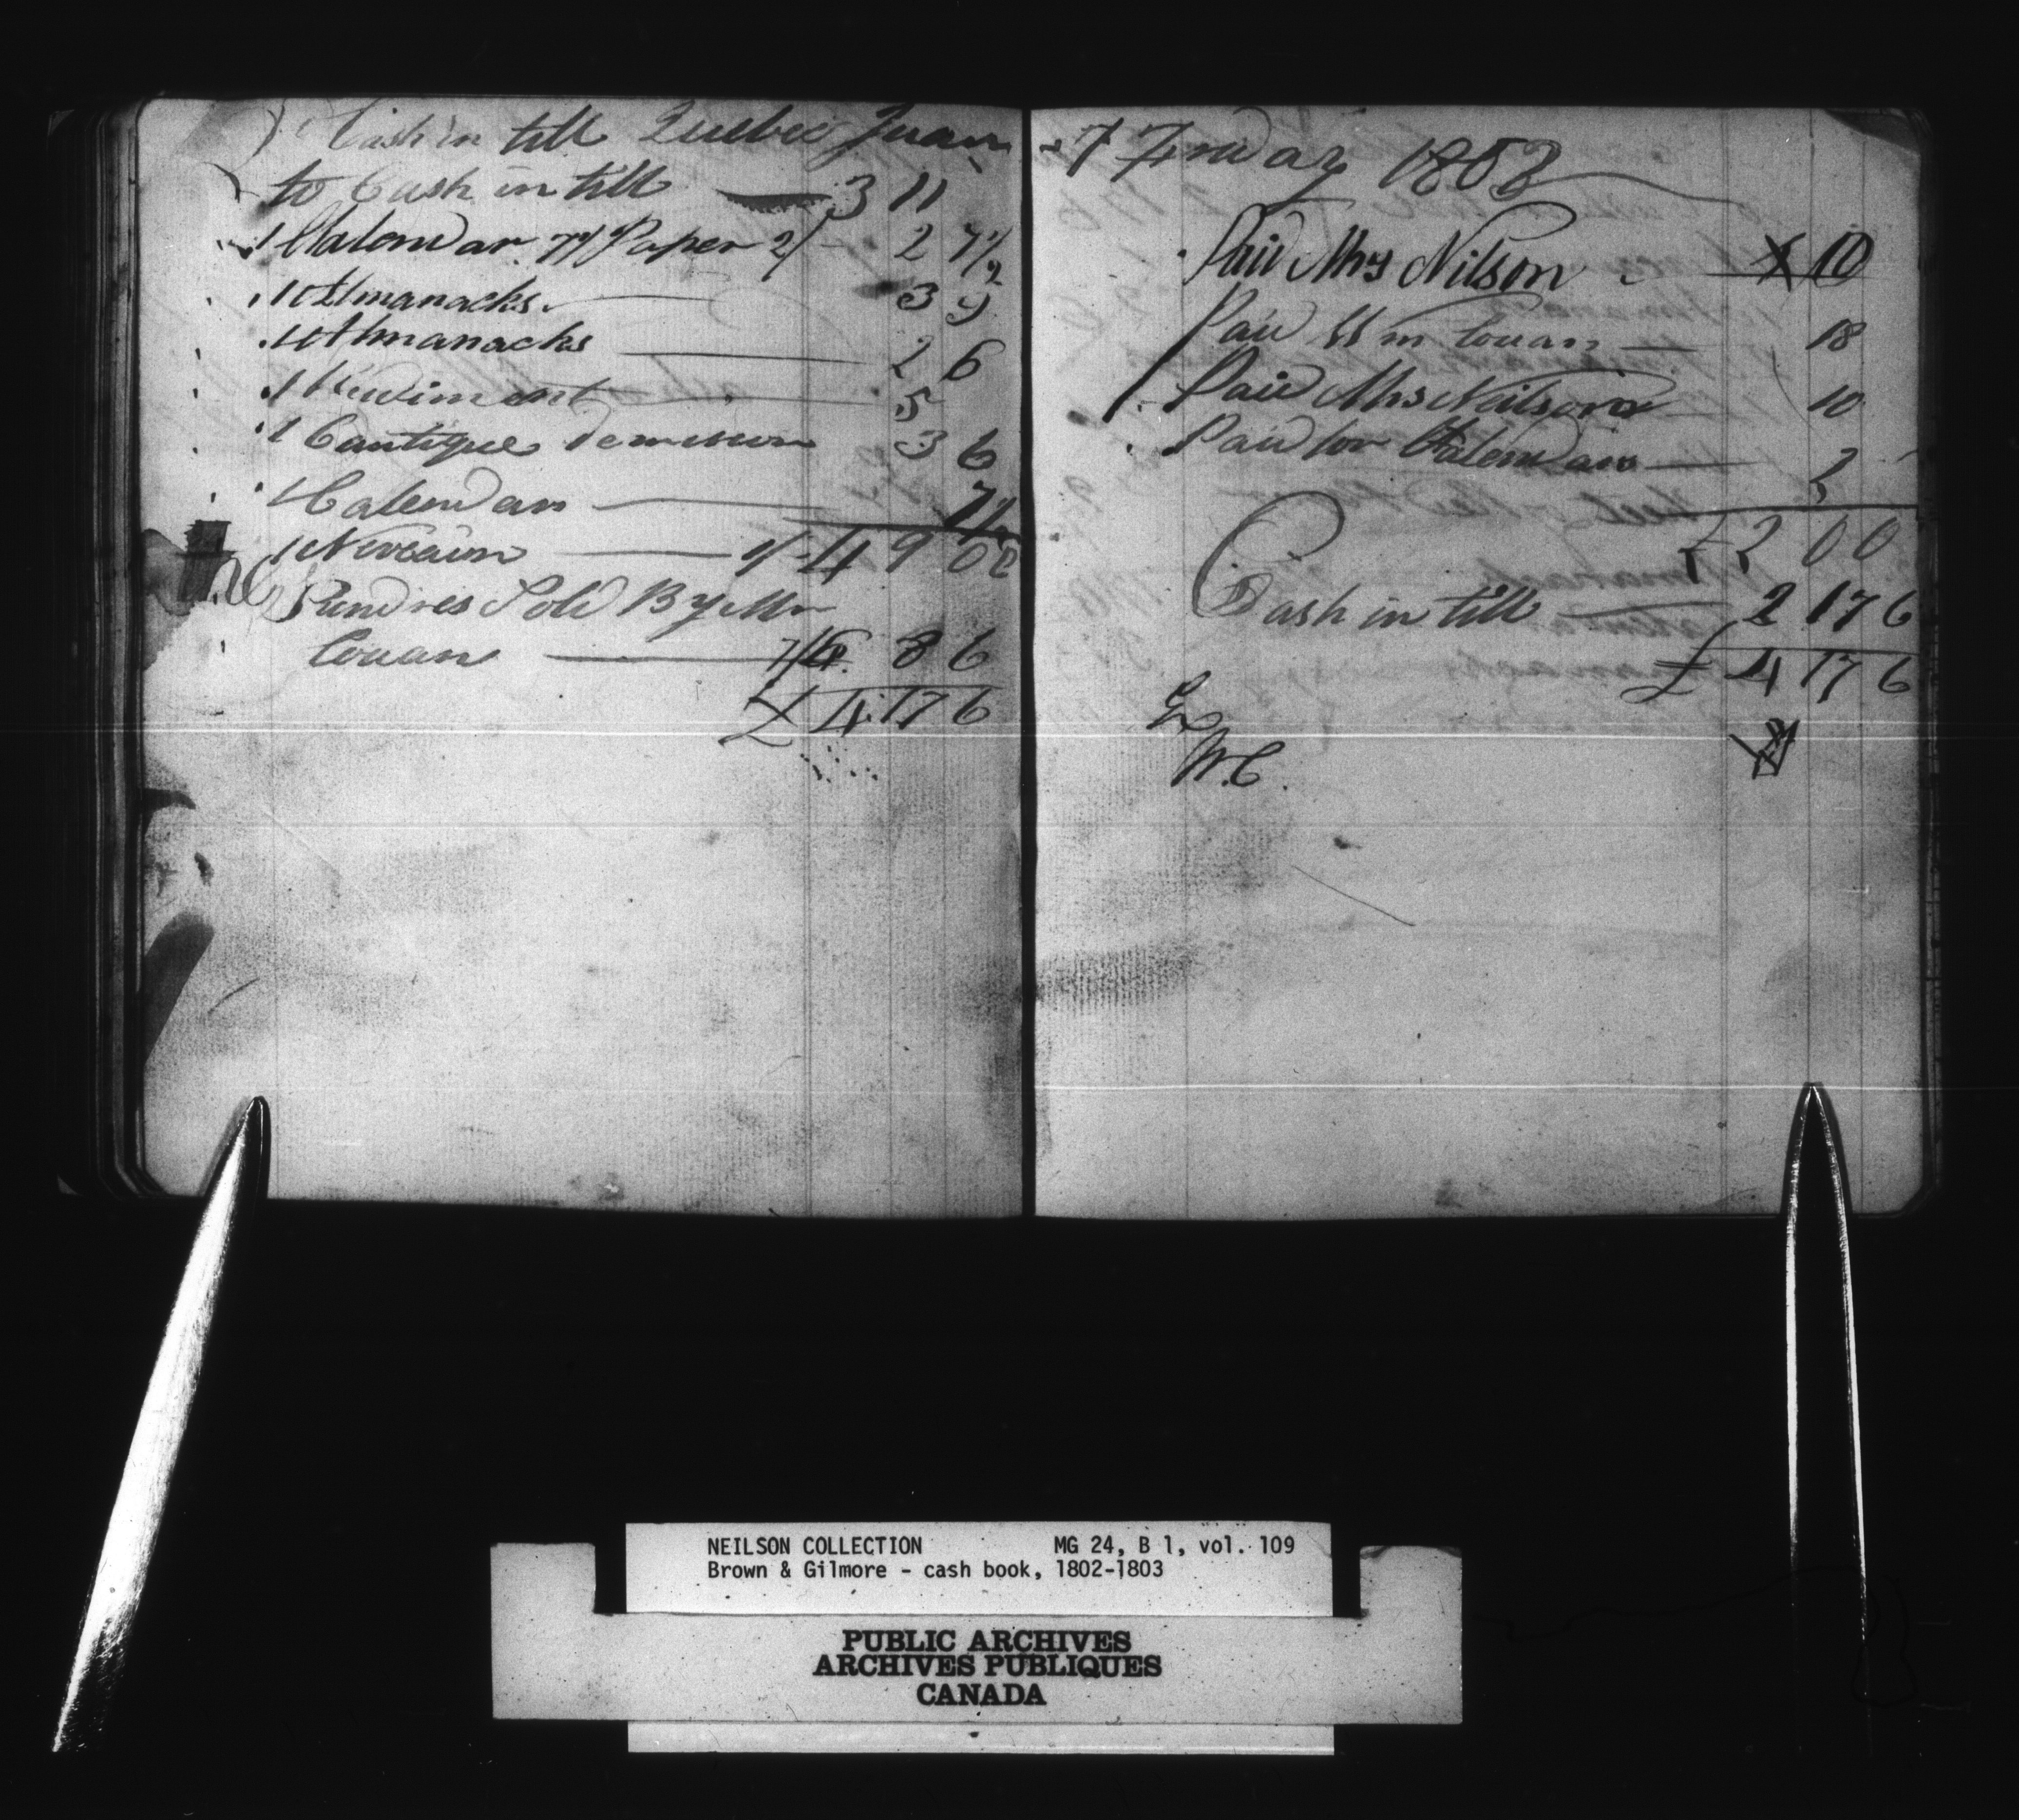 Cash in till Quebec Juan
to Cash in till 3 11
1 Calendar 7½ Paper 2/ 2 7½
1 Almanacks 3 9
1 Almanacks 2 6
1 Rudiment 5
1 Cantique 3 6
1 Calendar 7½
1 4 9 0
Sundries Sold By Mr
Couan 8 6
£ 4 17 6
7 Friday 1803
Paid Mrs Nilson 10
Paid Wm Couan 18
Paid Mrs Neilson 10
Paid for Calendars 2
£ 2 0 0
Cash in till 2 17 6
£ 4 17 6
Ex
W.C.
NEILSON COLLECTION MG 24, B 1, vol. 109
Brown & Gilmore - cash book, 1802-1803
PUBLIC ARCHIVES
ARCHIVES PUBLIQUES
CANADA